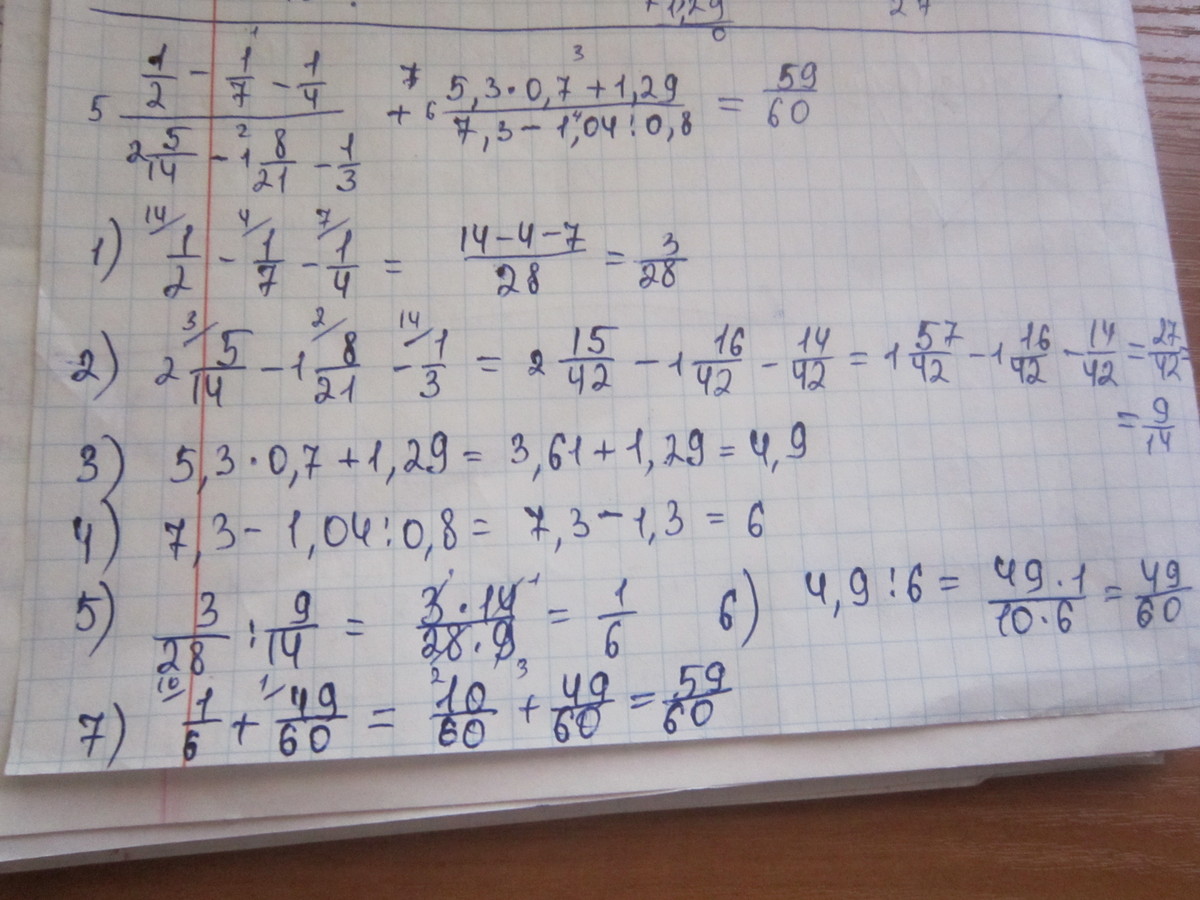 +1,29
0
27
5 (1/2 - 1/7 - 1/4)/(2 5/14 - 1 8/21 - 1/3) + 6 (5,3·0,7+1,29)/(7,3-1,04:0,8) = 59/60
1) 1/2 - 1/7 - 1/4 = (14-4-7)/28 = 3/28
2) 2 5/14 - 1 8/21 - 1/3 = 2 15/42 - 1 16/42 - 14/42 = 1 57/42 - 1 16/42 - 14/42 = 27/42 =
= 9/14
3) 5,3·0,7+1,29 = 3,61+1,29 = 4,9
4) 7,3-1,04:0,8 = 7,3-1,3 = 6
5) 3/28 : 9/14 = (3·14)/(28·9) = 1/6 6) 4,9:6 = (49·1)/(10·6) = 49/60
7) 1/6 + 49/60 = 10/60 + 49/60 = 59/60